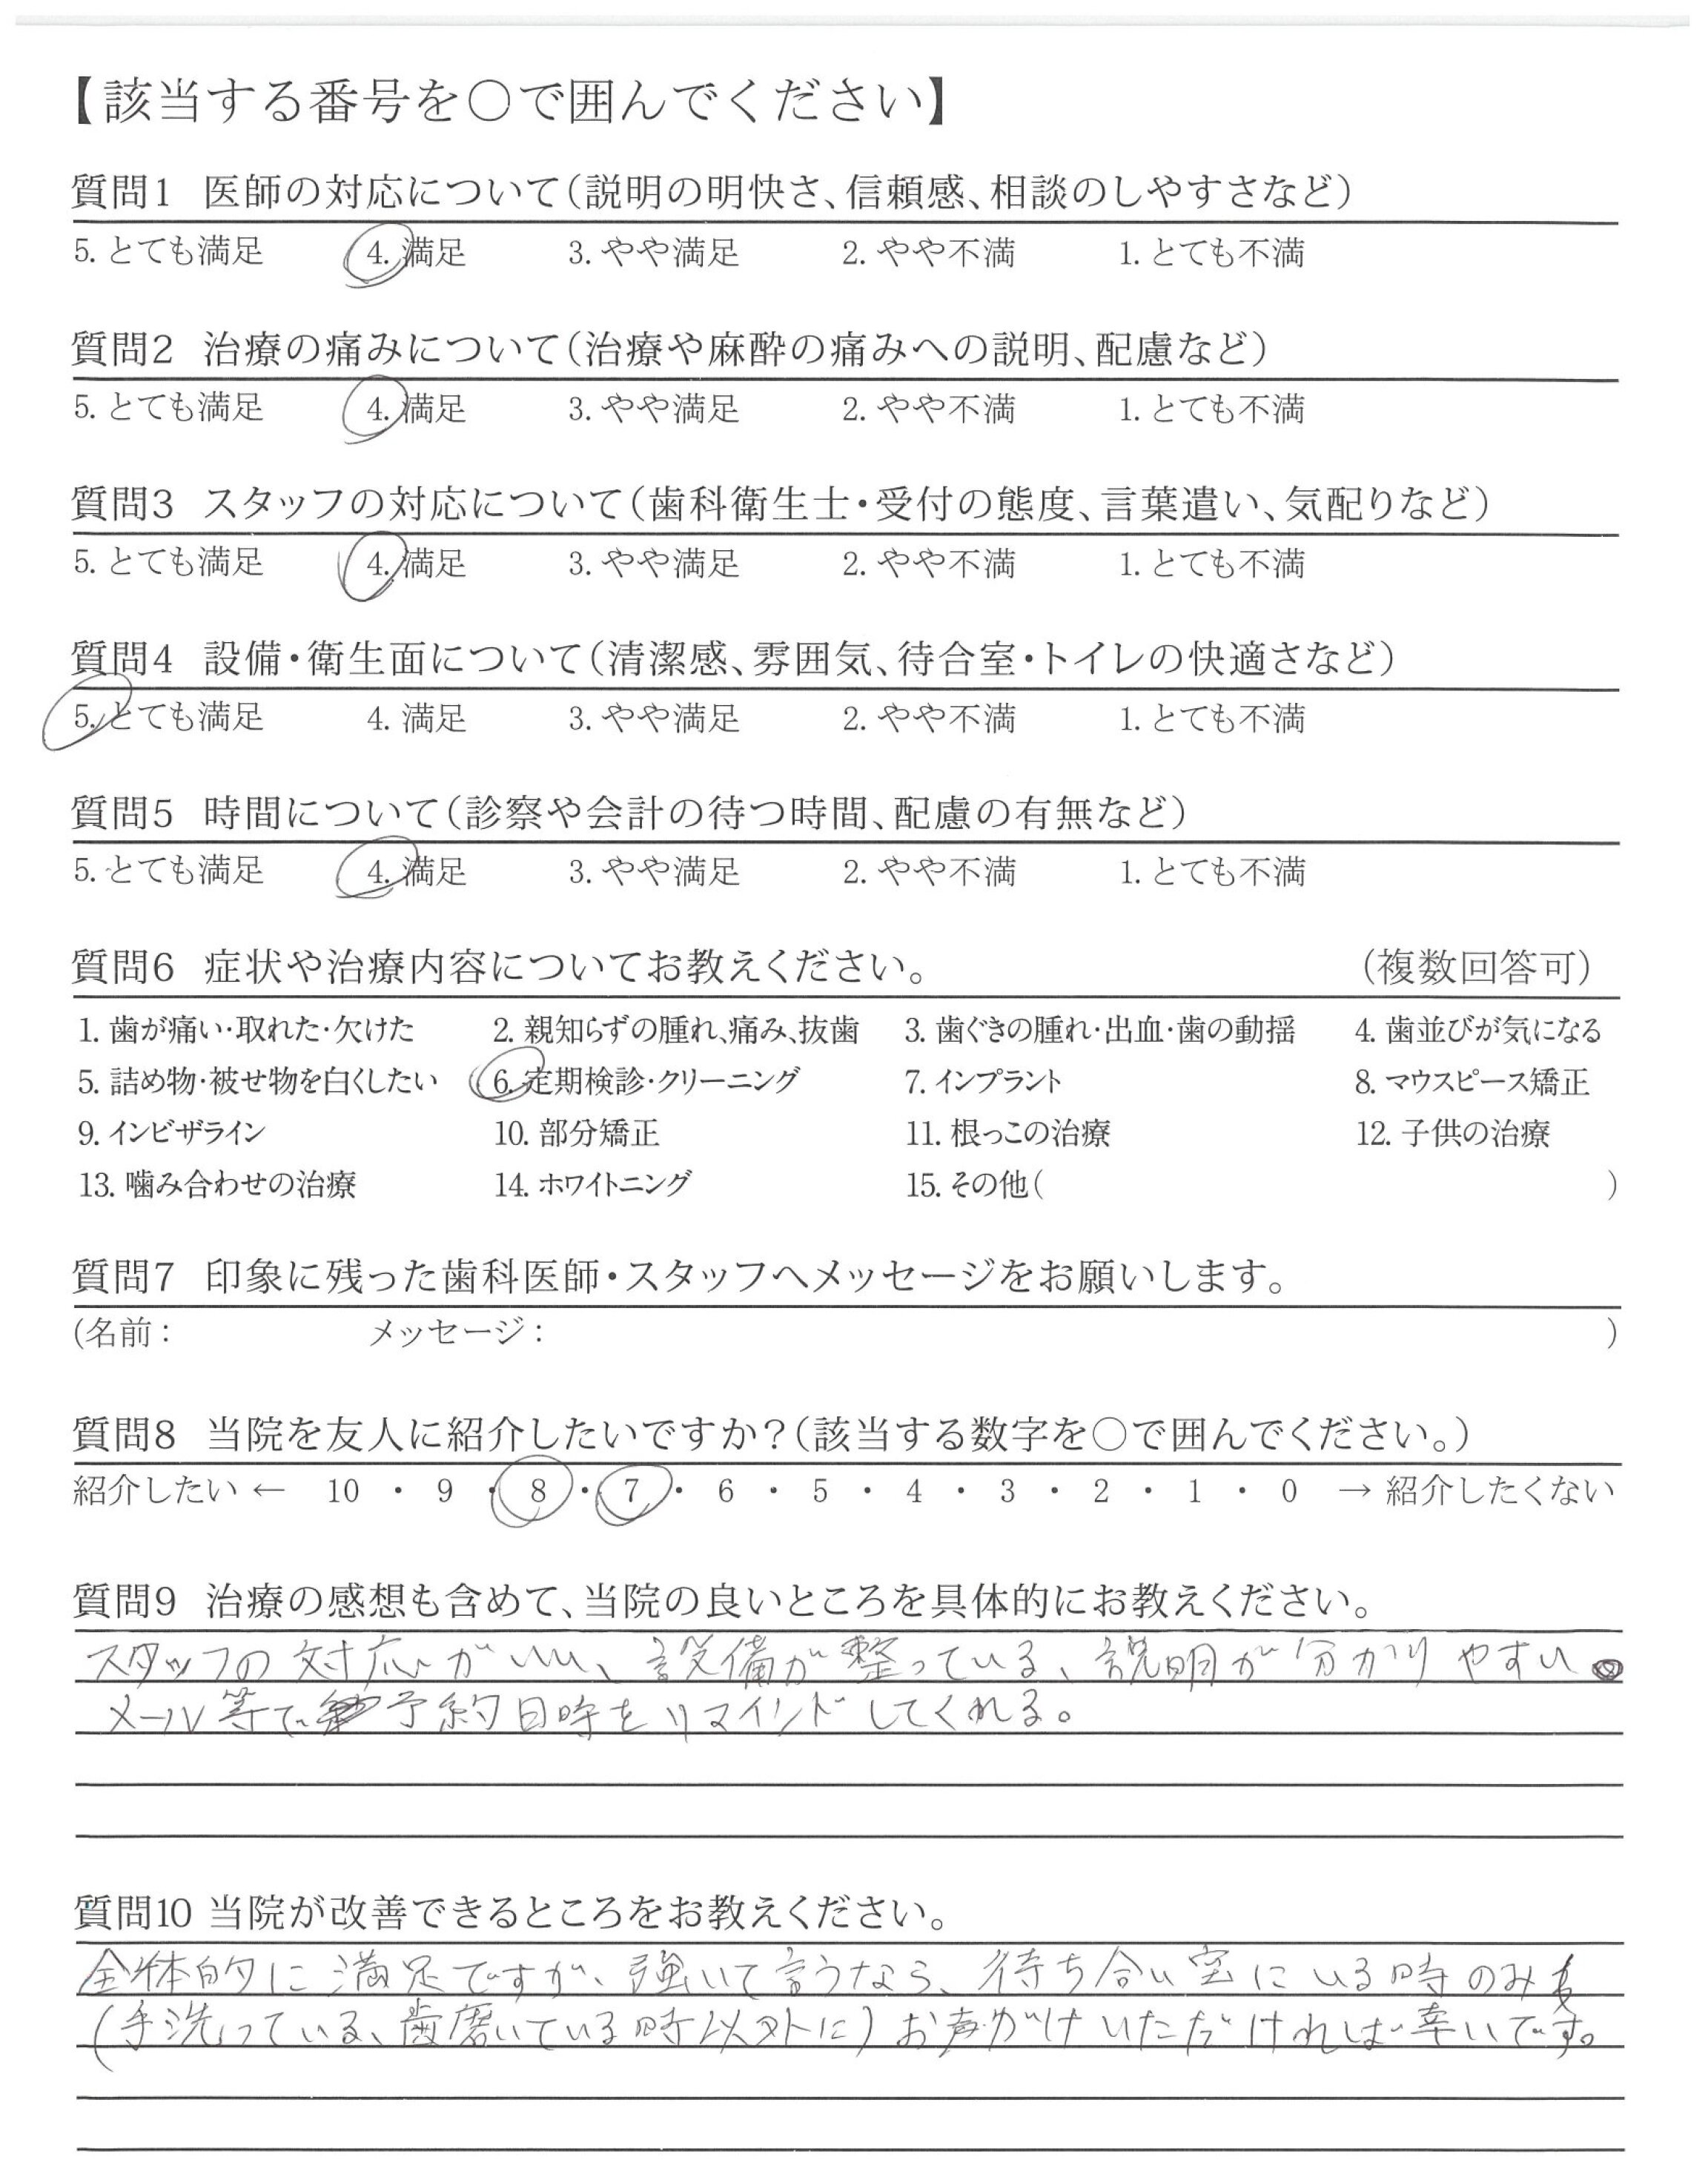 【該当する番号を〇で囲んでください】
質問1 医師の対応について（説明の明快さ、信頼感、相談のしやすさなど）
5. とても満足 4. 満足 3. やや満足 2. やや不満 1. とても不満
質問2 治療の痛みについて（治療や麻酔の痛みへの説明、配慮など）
5. とても満足 4. 満足 3. やや満足 2. やや不満 1. とても不満
質問3 スタッフの対応について（歯科衛生士・受付の態度、言葉遣い、気配りなど）
5. とても満足 4. 満足 3. やや満足 2. やや不満 1. とても不満
質問4 設備・衛生面について（清潔感、雰囲気、待合室・トイレの快適さなど）
5. とても満足 4. 満足 3. やや満足 2. やや不満 1. とても不満
質問5 時間について（診察や会計の待つ時間、配慮の有無など）
5. とても満足 4. 満足 3. やや満足 2. やや不満 1. とても不満
質問6 症状や治療内容についてお教えください。 （複数回答可）
1. 歯が痛い・取れた・欠けた 2. 親知らずの腫れ、痛み、抜歯 3. 歯ぐきの腫れ・出血・歯の動揺 4. 歯並びが気になる
5. 詰め物・被せ物を白くしたい 6. 定期検診・クリーニング 7. インプラント 8. マウスピース矯正
9. インビザライン 10. 部分矯正 11. 根っこの治療 12. 子供の治療
13. 噛み合わせの治療 14. ホワイトニング 15. その他（ ）
質問7 印象に残った歯科医師・スタッフへメッセージをお願いします。
（名前： メッセージ： ）
質問8 当院を友人に紹介したいですか？（該当する数字を〇で囲んでください。）
紹介したい ← 10 ・ 9 ・ 8 ・ 7 ・ 6 ・ 5 ・ 4 ・ 3 ・ 2 ・ 1 ・ 0 → 紹介したくない
質問9 治療の感想も含めて、当院の良いところを具体的にお教えください。
スタッフの対応がいい、設備が整っている、説明が分かりやすい
メール等で予約日時をリマインドしてくれる。
質問10 当院が改善できるところをお教えください。
全体的に満足ですが、強いて言うなら、待ち合い室にいる時のみ
（手洗っている、歯磨いている時以外に）お声がけいただければ幸いです。